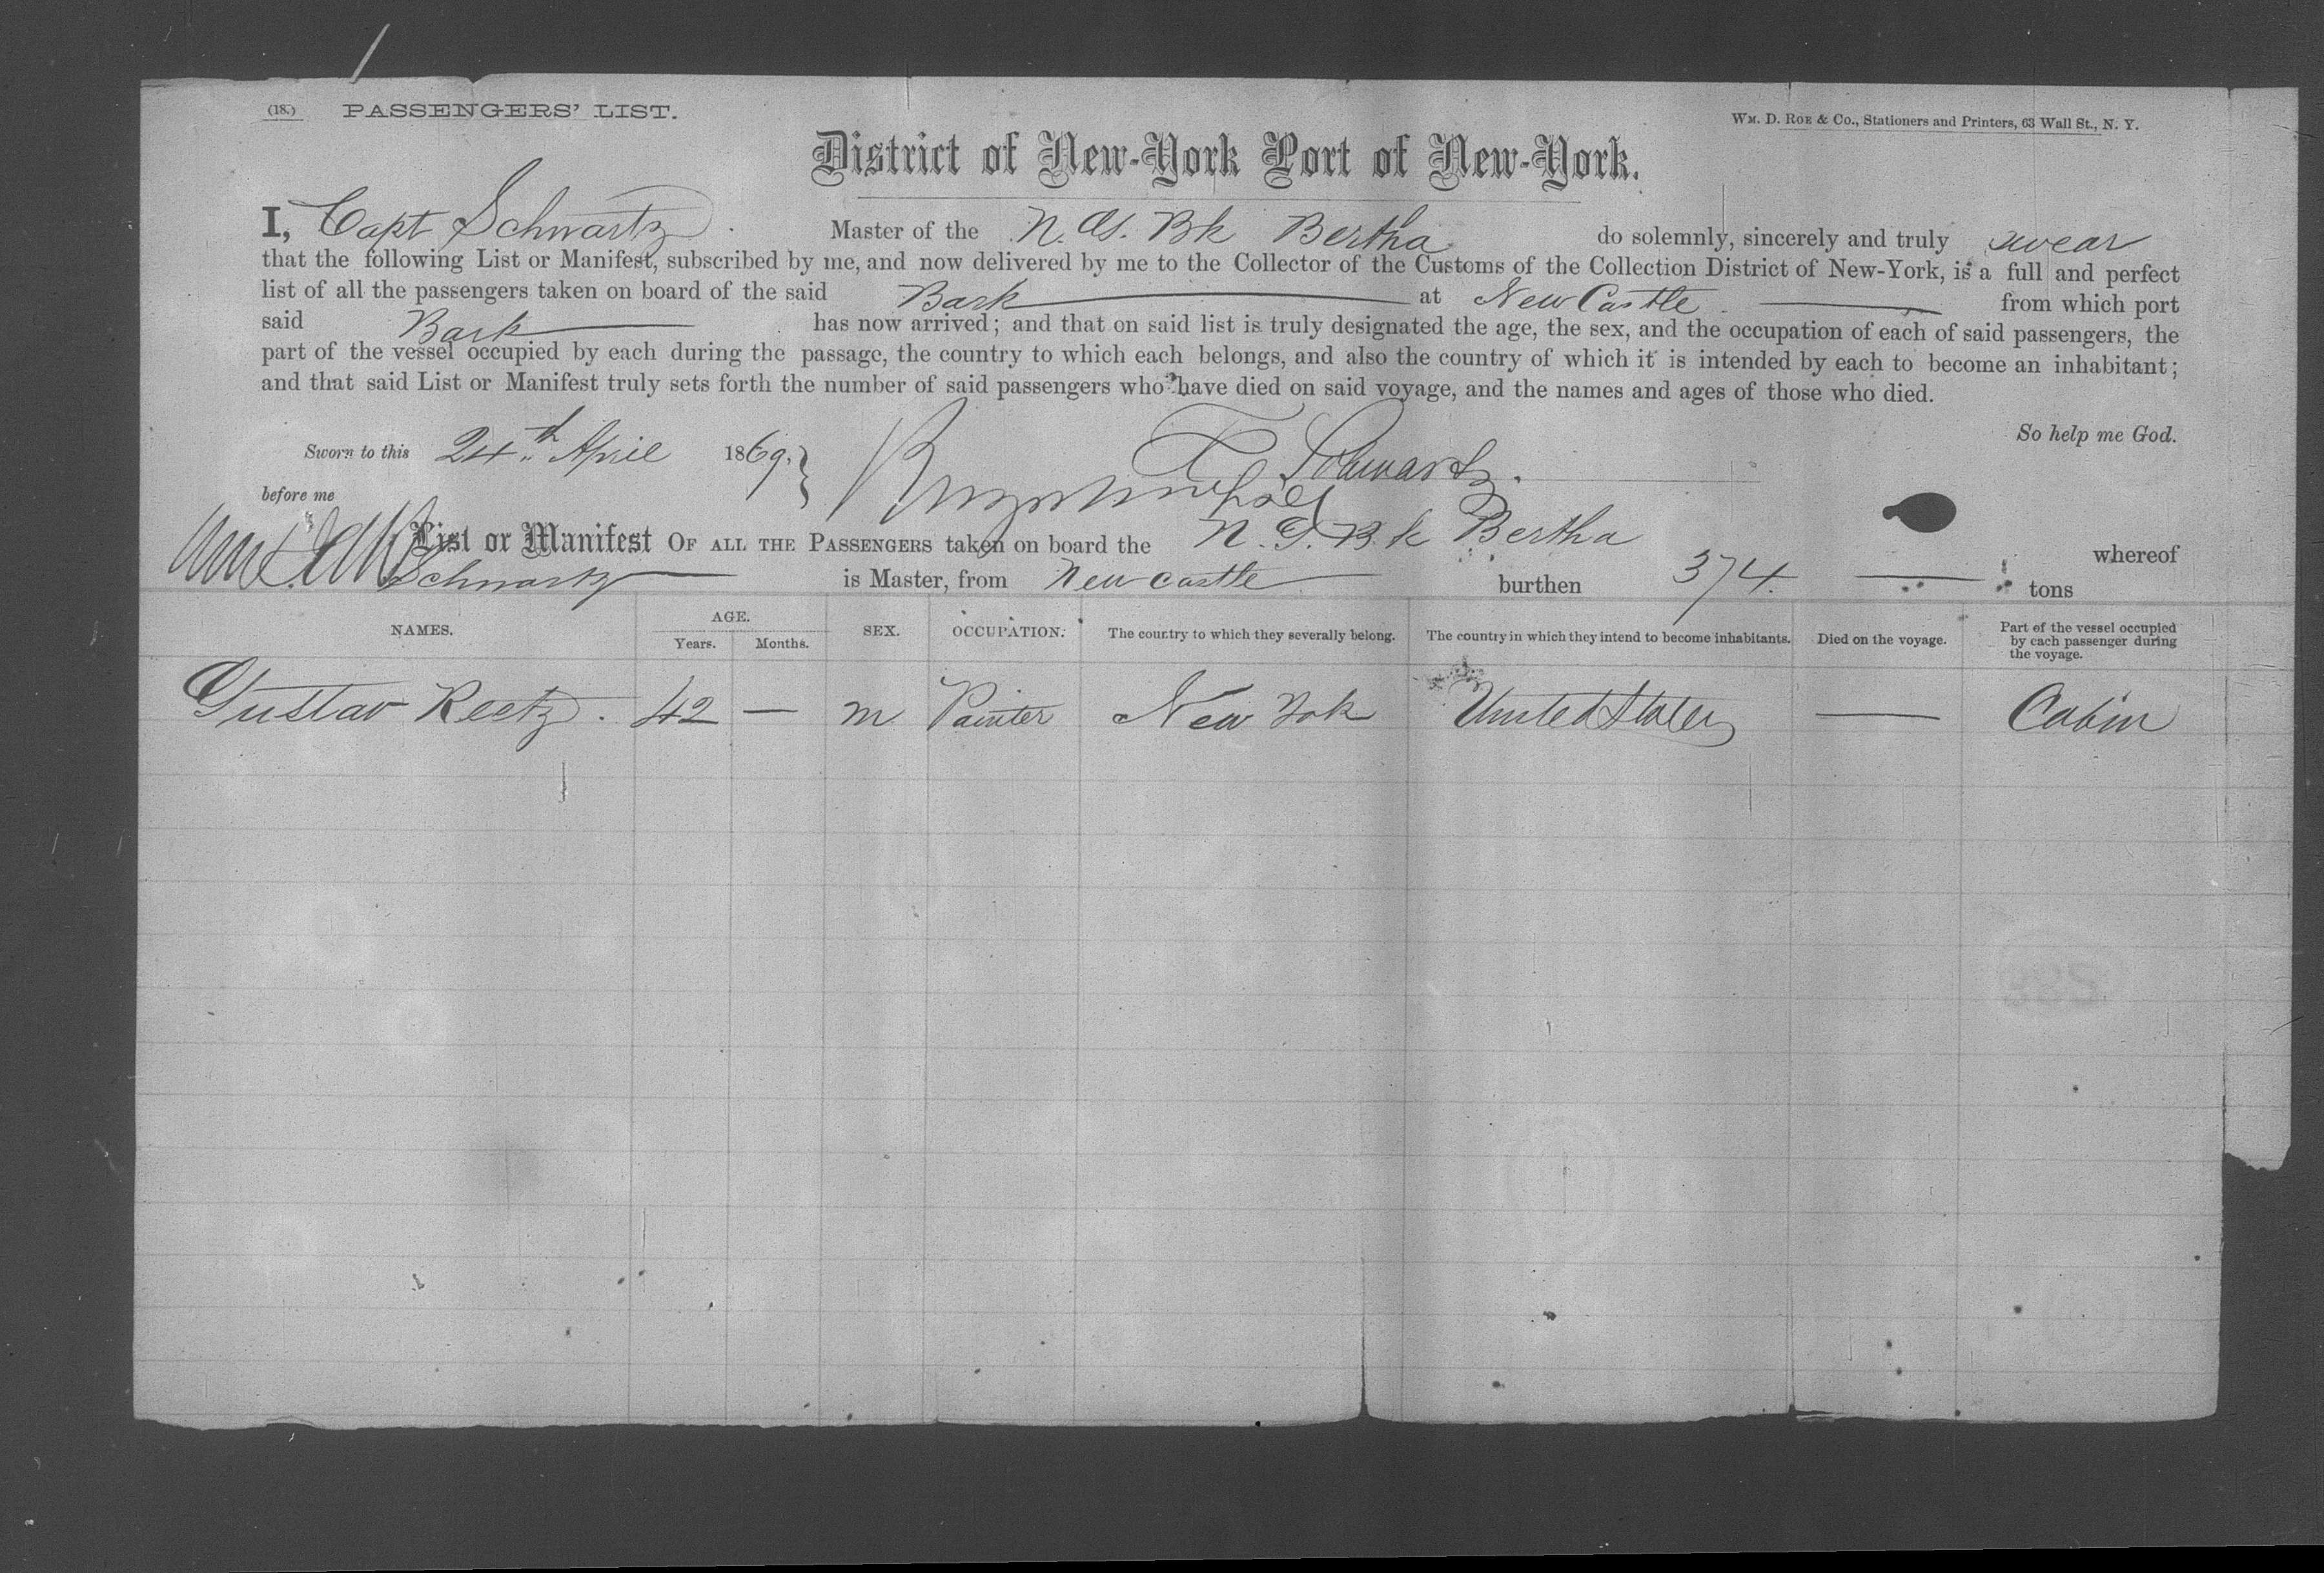 (18.) PASSENGERS' LIST.
WM. D. ROE & Co., Stationers and Printers, 63 Wall St., N. Y.
District of New-York Port of New-York.
I, Capt Schwartz Master of the N. G. Bk Bertha do solemnly, sincerely and truly swear
that the following List or Manifest, subscribed by me, and now delivered by me to the Collector of the Customs of the Collection District of New-York, is a full and perfect
list of all the passengers taken on board of the said Bark at New Castle from which port
said Bark has now arrived; and that on said list is truly designated the age, the sex, and the occupation of each of said passengers, the
part of the vessel occupied by each during the passage, the country to which each belongs, and also the country of which it is intended by each to become an inhabitant;
and that said List or Manifest truly sets forth the number of said passengers who have died on said voyage, and the names and ages of those who died.
So help me God.
Sworn to this 24th April 1869. Schwartz.
before me
List or Manifest OF ALL THE PASSENGERS taken on board the N. G. Bk Bertha whereof
Schwartz is Master, from New castle burthen 374. tons
NAMES. AGE. Years. Months. SEX. OCCUPATION. The country to which they severally belong. The country in which they intend to become inhabitants. Died on the voyage. Part of the vessel occupied by each passenger during the voyage.
Gustav Reetz. 42 — m Painter New Yok United States — Cabin